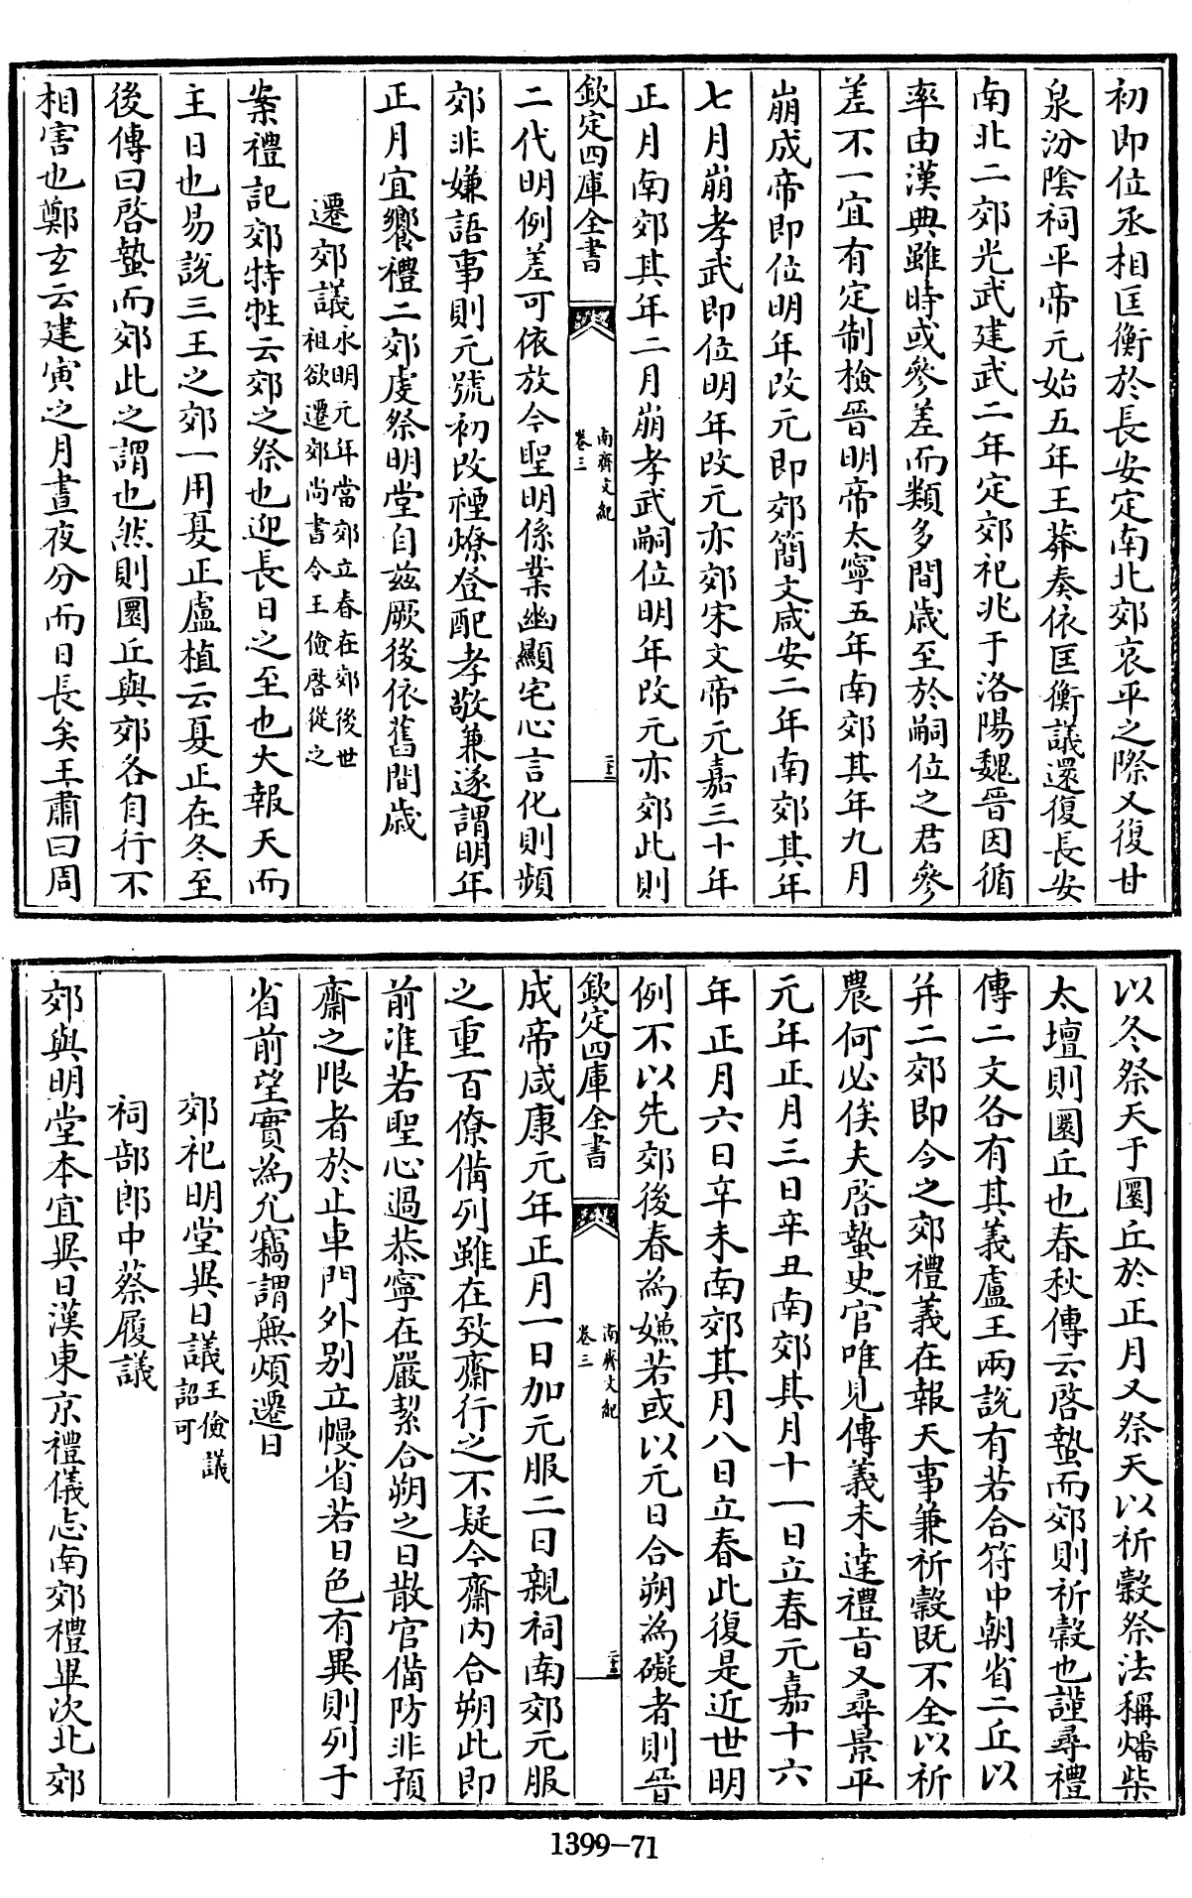 初即位丞相匡衡於長安定南北郊哀平之際又復甘
泉汾陰祠平帝元始五年王莽奏依匡衡議還復長安
南北二郊光武建武二年定郊祀兆于洛陽魏晉因循
率由漢典雖時或參差而類多間歲至於嗣位之君參
差不一宜有定制檢晉明帝太寧五年南郊其年九月
崩成帝即位明年改元即郊簡文咸安二年南郊其年
七月崩孝武即位明年改元亦郊宋文帝元嘉三十年
正月南郊其年二月崩孝武嗣位明年改元亦郊此則
欽定四庫全書
南齊文紀
卷三
二十二
二代明例差可依放今聖明係業幽顯宅心言化則頻
郊非嫌語事則元號初改禋燎登配孝敬兼遂謂明年
正月宜饗禮二郊虔祭明堂自茲厥後依舊間歲
遷郊議永明元年當郊立春在郊後世
祖欲遷郊尚書令王儉啓從之
案禮記郊特牲云郊之祭也迎長日之至也大報天而
主日也易說三王之郊一用夏正盧植云夏正在冬至
後傳曰啓蟄而郊此之謂也然則圜丘與郊各自行不
相害也鄭玄云建寅之月晝夜分而日長矣王肅曰周
以冬祭天于圜丘於正月又祭天以祈穀祭法稱燔柴
太壇則圜丘也春秋傳云啓蟄而郊則祈穀也謹尋禮
傳二文各有其義盧王兩說有若合符中朝省二丘以
并二郊即今之郊禮義在報天事兼祈穀既不全以祈
農何必俟夫啓蟄史官唯見傳義未達禮旨又尋景平
元年正月三日辛丑南郊其月十一日立春元嘉十六
年正月六日辛未南郊其月八日立春此復是近世明
例不以先郊後春為嫌若或以元日合朔為礙者則晉
欽定四庫全書
南齊文紀
卷三
二十三
成帝咸康元年正月一日加元服二日親祠南郊元服
之重百僚備列雖在致齋行之不疑今齋內合朔此即
前准若聖心過恭寧在嚴潔合朔之日散官備防非預
齋之限者於止車門外别立幔省若日色有異則列于
省前望實為允竊謂無煩遷日
郊祀明堂異日議王儉議
詔可
祠部郎中蔡履議
郊與明堂本宜異日漢東京禮儀志南郊禮畢次北郊
1399—71